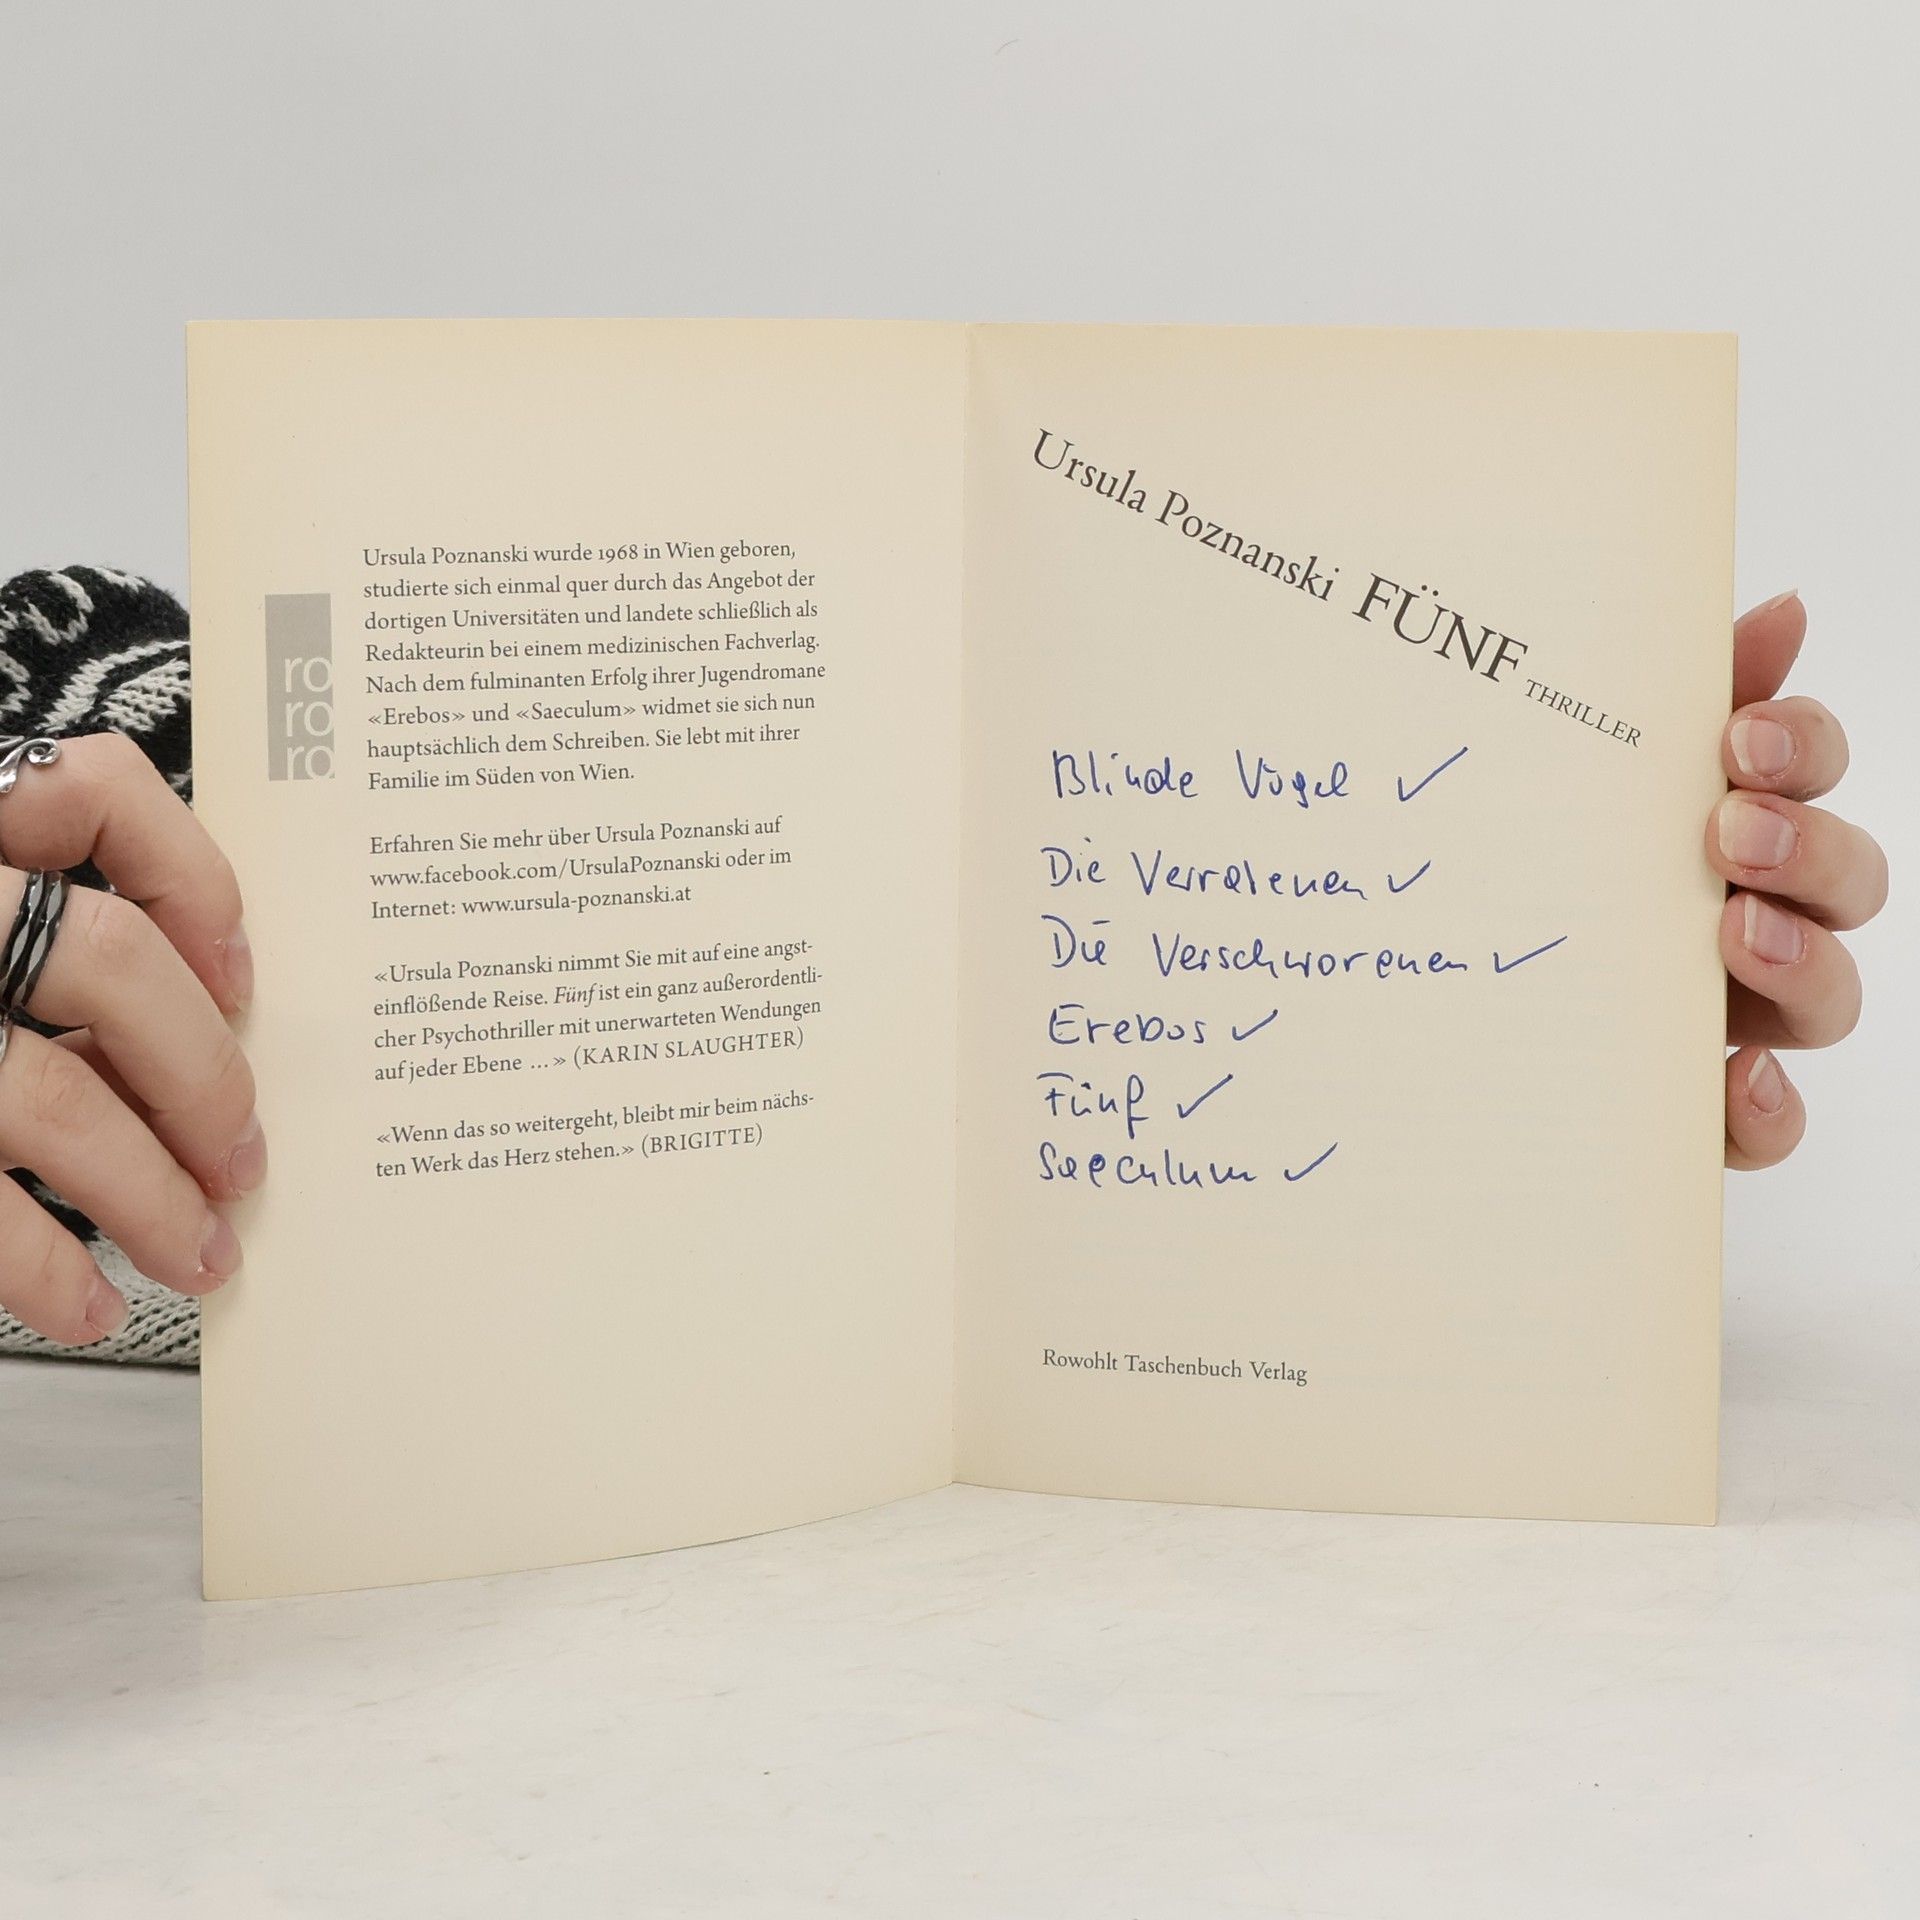 ro
ro
ro
Ursula Poznanski wurde 1968 in Wien geboren,
studierte sich einmal quer durch das Angebot der
dortigen Universitäten und landete schließlich als
Redakteurin bei einem medizinischen Fachverlag.
Nach dem fulminanten Erfolg ihrer Jugendromane
«Erebos» und «Saeculum» widmet sie sich nun
hauptsächlich dem Schreiben. Sie lebt mit ihrer
Familie im Süden von Wien.
Erfahren Sie mehr über Ursula Poznanski auf
www.facebook.com/UrsulaPoznanski oder im
Internet: www.ursula-poznanski.at
«Ursula Poznanski nimmt Sie mit auf eine angst-
einflößende Reise. Fünf ist ein ganz außerordentli-
cher Psychothriller mit unerwarteten Wendungen
auf jeder Ebene ...» (KARIN SLAUGHTER)
«Wenn das so weitergeht, bleibt mir beim nächs-
ten Werk das Herz stehen.» (BRIGITTE)
Ursula Poznanski FÜNF THRILLER
Blinde Vögel ✓
Die Verratenen ✓
Die Verschworenen ✓
Erebos ✓
Fünf ✓
Saeculum ✓
Rowohlt Taschenbuch Verlag